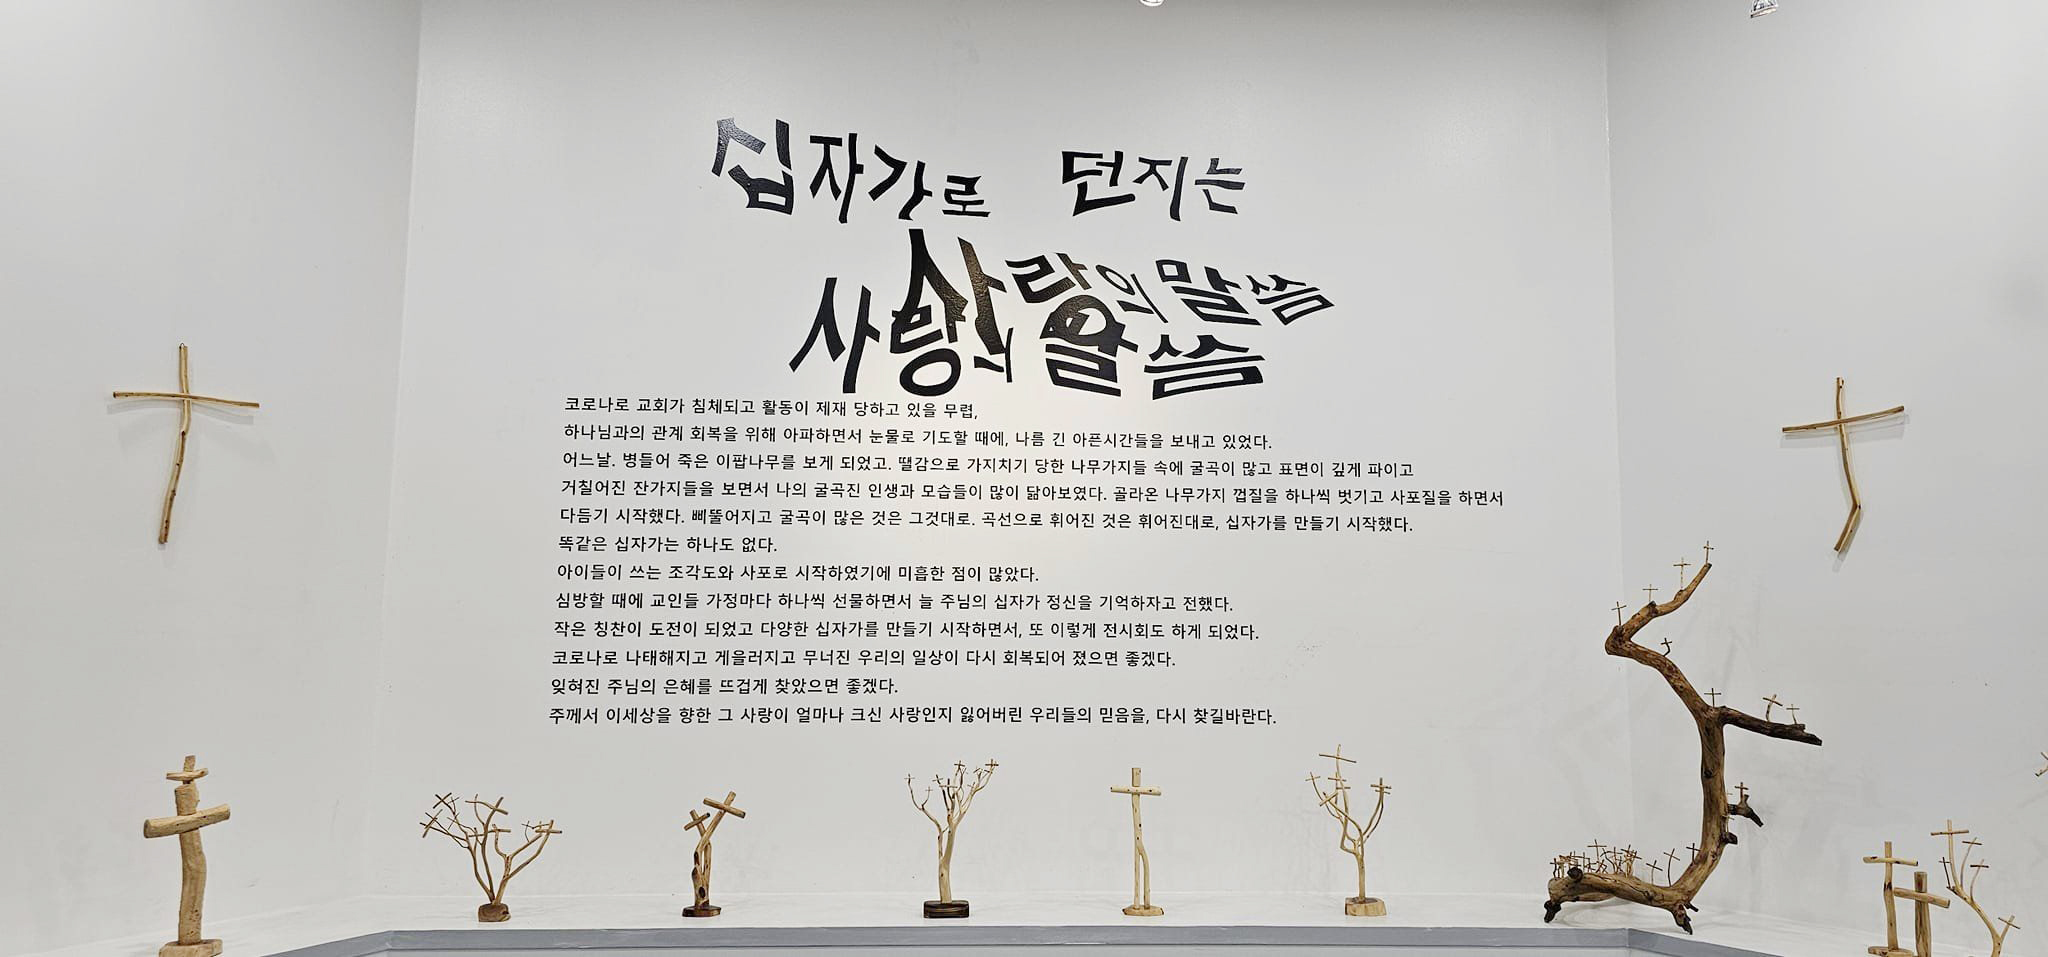 십자가로 던지는
사랑의 말씀
사랑의 말씀
코로나로 교회가 침체되고 활동이 제재 당하고 있을 무렵,
하나님과의 관계 회복을 위해 아파하면서 눈물로 기도할 때에, 나름 긴 아픈시간들을 보내고 있었다.
어느날. 병들어 죽은 이팝나무를 보게 되었고. 땔감으로 가지치기 당한 나무가지들 속에 굴곡이 많고 표면이 깊게 파이고
거칠어진 잔가지들을 보면서 나의 굴곡진 인생과 모습들이 많이 닮아보였다. 골라온 나무가지 껍질을 하나씩 벗기고 사포질을 하면서
다듬기 시작했다. 삐뚤어지고 굴곡이 많은 것은 그것대로. 곡선으로 휘어진 것은 휘어진대로, 십자가를 만들기 시작했다.
똑같은 십자가는 하나도 없다.
아이들이 쓰는 조각도와 사포로 시작하였기에 미흡한 점이 많았다.
심방할 때에 교인들 가정마다 하나씩 선물하면서 늘 주님의 십자가 정신을 기억하자고 전했다.
작은 칭찬이 도전이 되었고 다양한 십자가를 만들기 시작하면서, 또 이렇게 전시회도 하게 되었다.
코로나로 나태해지고 게을러지고 무너진 우리의 일상이 다시 회복되어 졌으면 좋겠다.
잊혀진 주님의 은혜를 뜨겁게 찾았으면 좋겠다.
주께서 이세상을 향한 그 사랑이 얼마나 크신 사랑인지 잃어버린 우리들의 믿음을, 다시 찾길바란다.